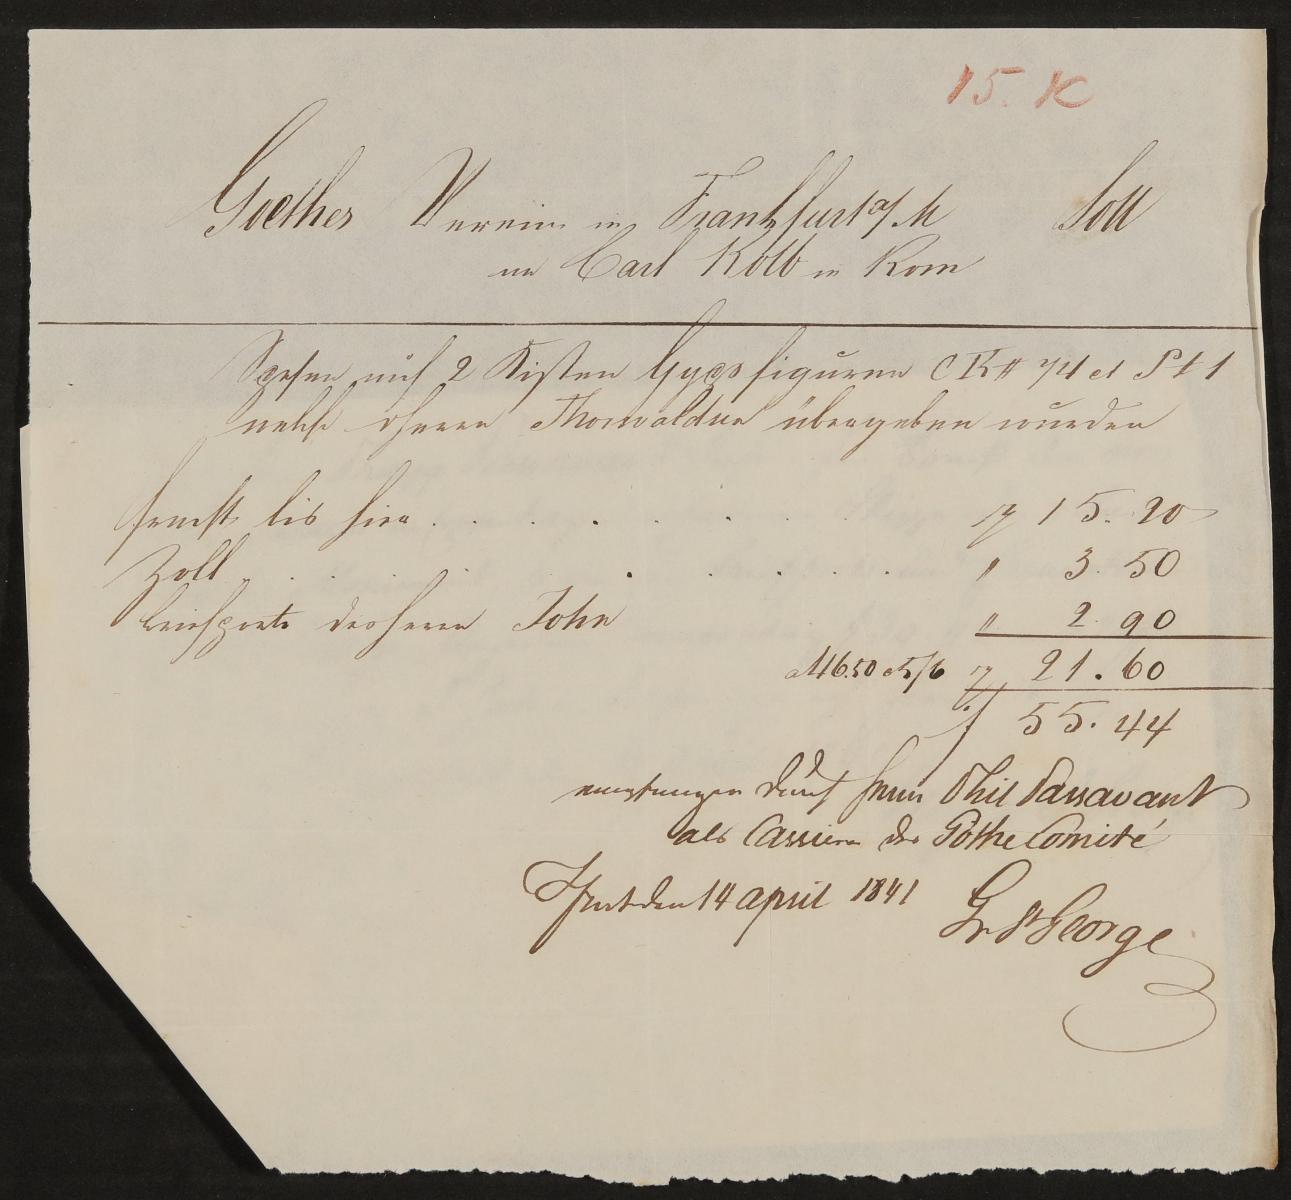 15. K
Goethes Verein in Frankfurt a/M Soll
an Carl Kolb in Rom
Spesen auf 2 Kisten Gypsfiguren C K # 74 et St 1
welche Herrn Thorwaldsen übergeben wurden
Fracht bis hier . . . . . . . 15. 20
Zoll . . . . . . . . . " 3. 50
Briefporto des Herrn John " 2. 90
a 146.50 21. 60
f 55. 44
empfangen durch Herrn Phil Passavant
als Cassier des Göthe Comité
Ffurt den 14 April 1841 St George